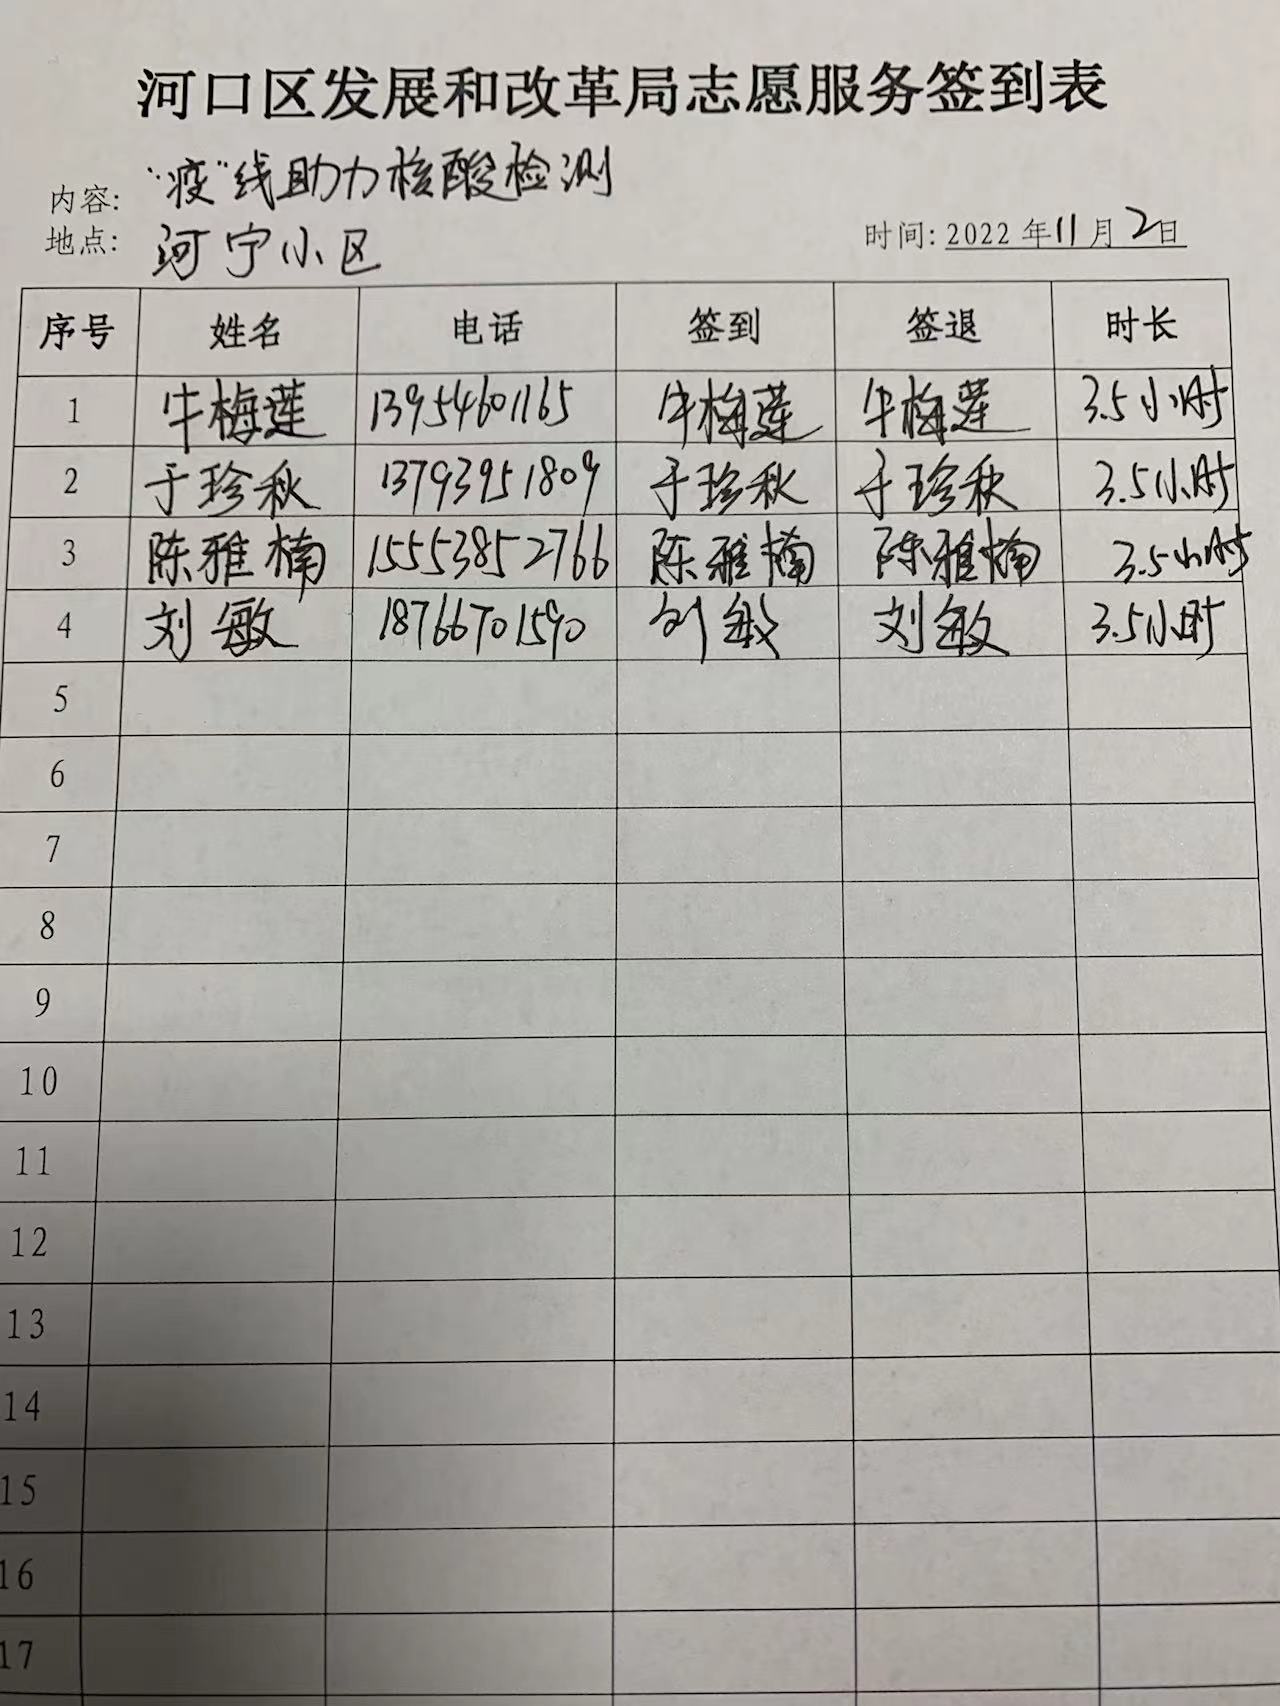 河口区发展和改革局志愿服务签到表
内容: “疫”线助力核酸检测
地点: 河宁小区 时间: 2022年11月2日
序号 姓名 电话 签到 签退 时长
1 牛梅莲 13954601165 牛梅莲 牛梅莲 3.5小时
2 于珍秋 13793951809 于珍秋 于珍秋 3.5小时
3 陈雅楠 15553852766 陈雅楠 陈雅楠 3.5小时
4 刘敏 18766701590 刘敏 刘敏 3.5小时
5
6
7
8
9
10
11
12
13
14
15
16
17